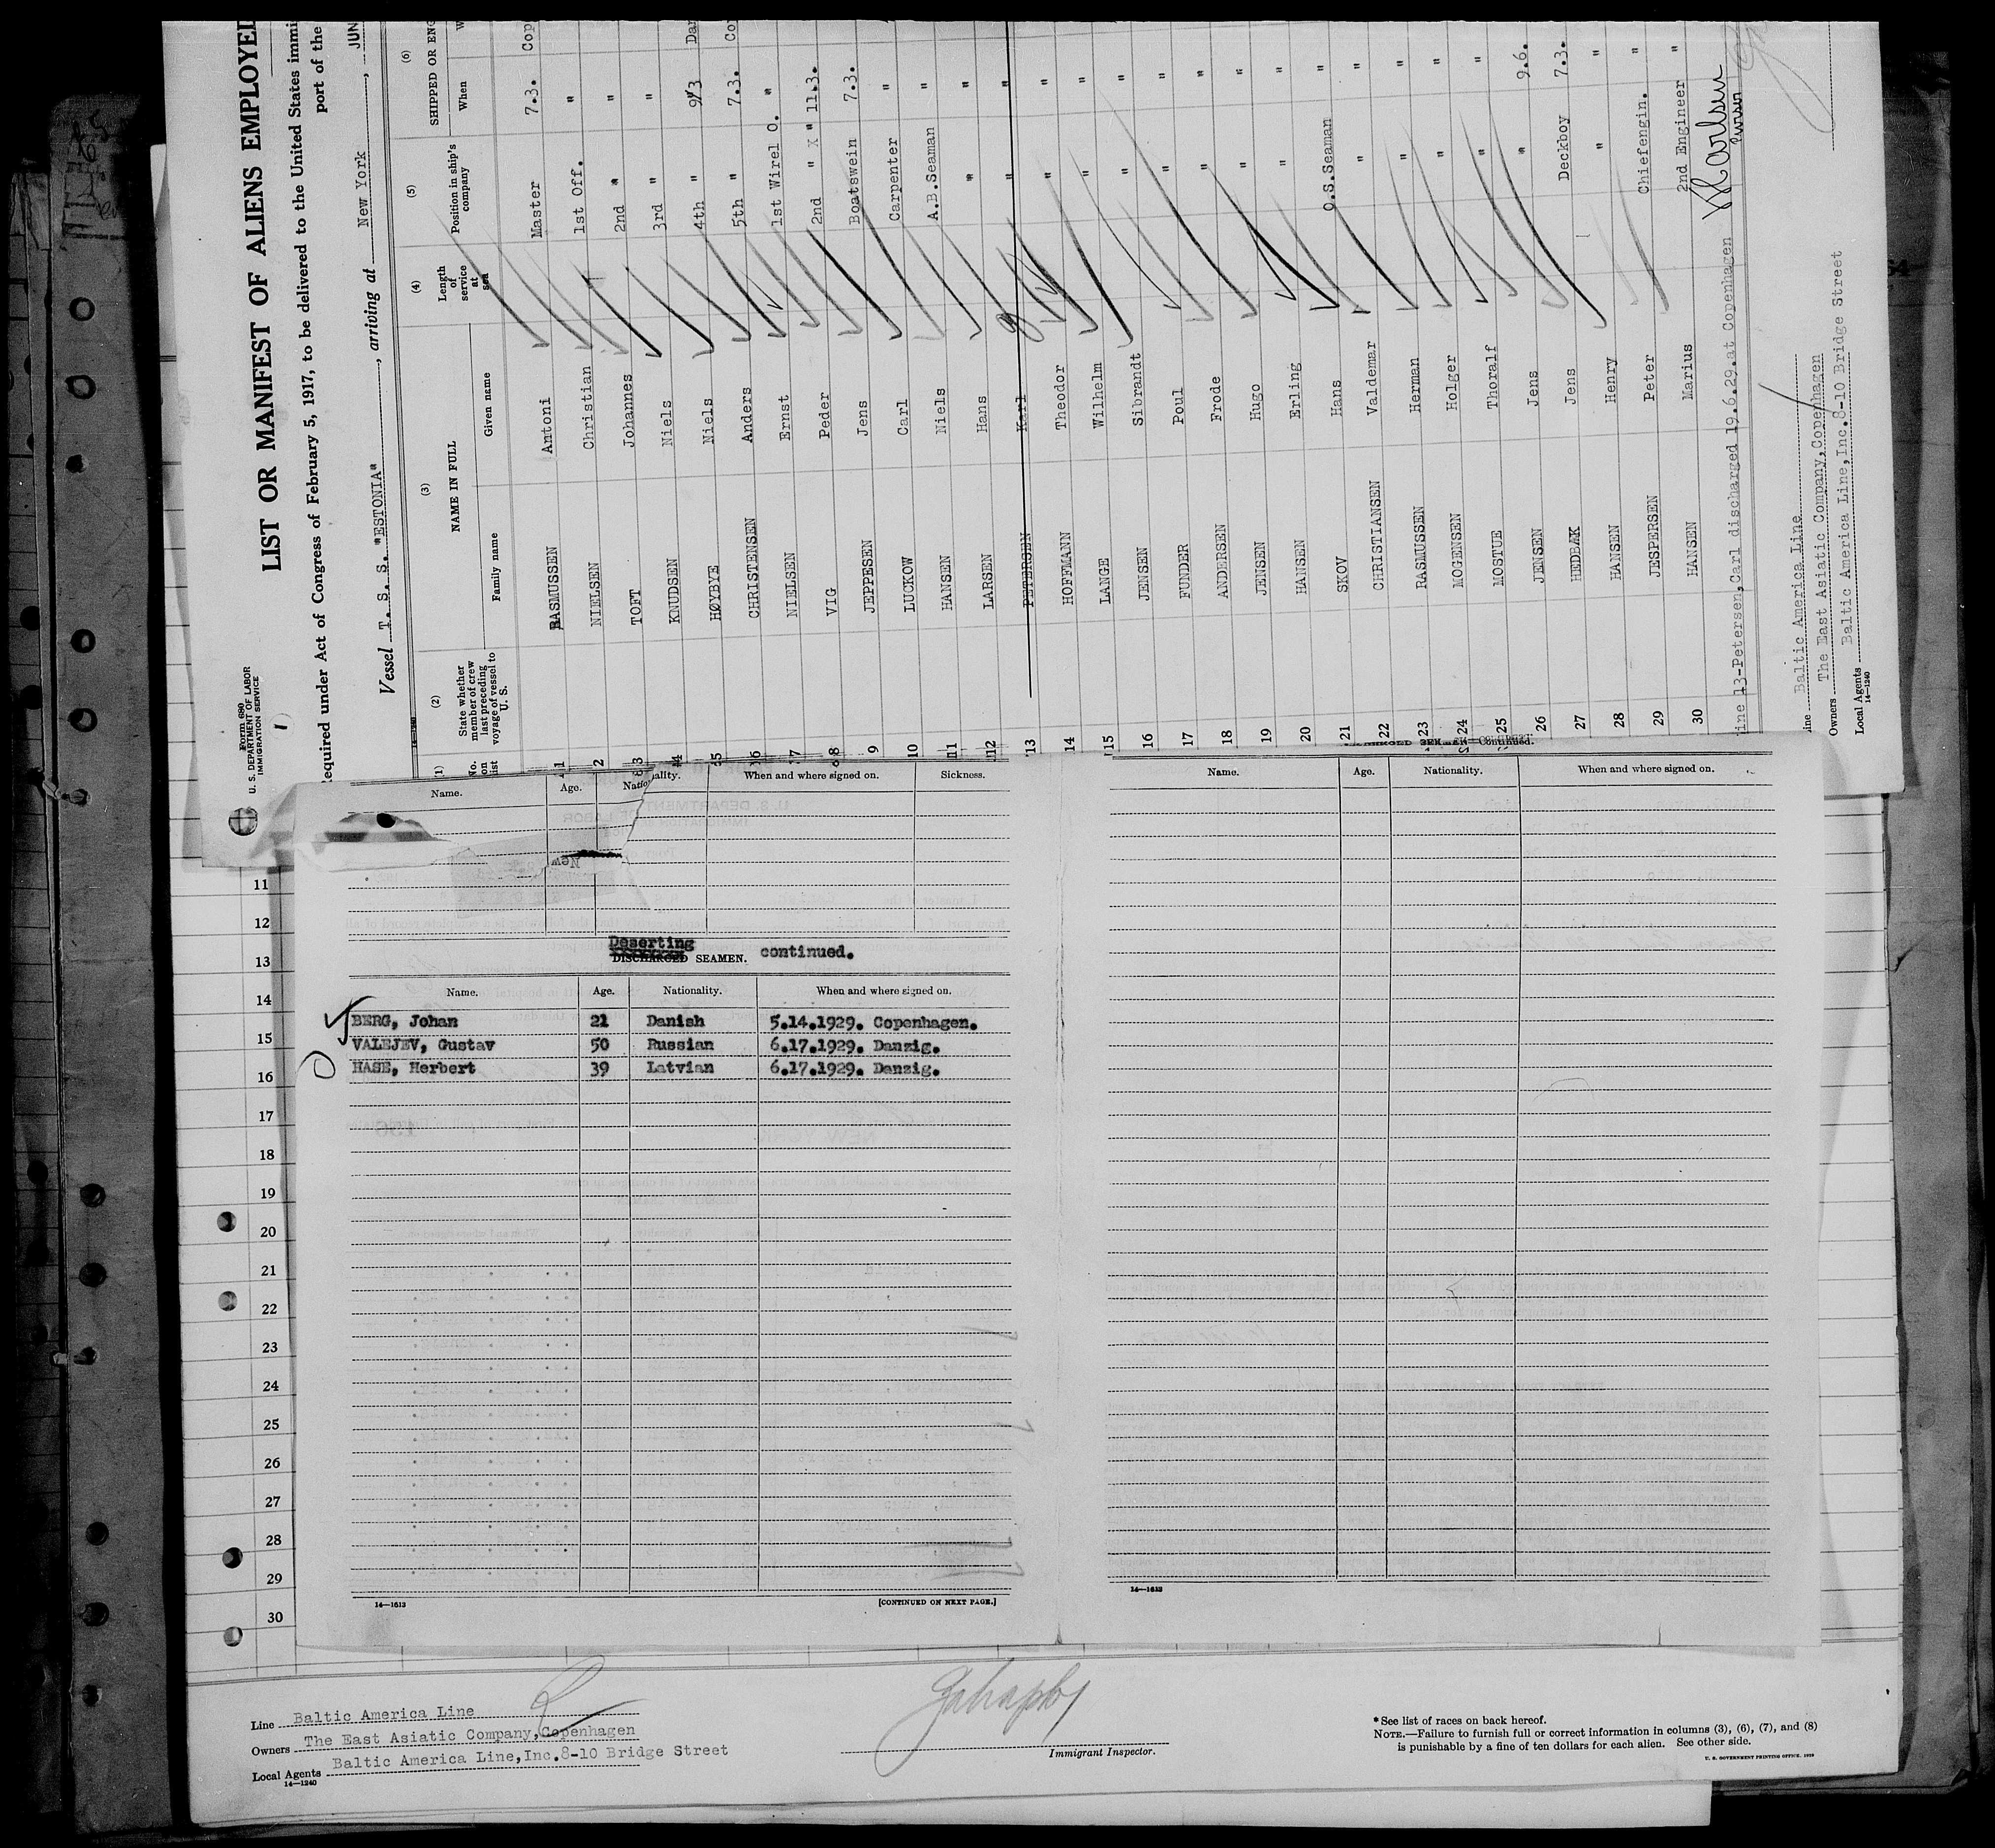 Form 680
U. S. DEPARTMENT OF LABOR
IMMIGRATION SERVICE
LIST OR MANIFEST OF ALIENS EMPLOYED
equired under Act of Congress of February 5, 1917, to be delivered to the United States immi
port of the
Vessel T. S. S. "ESTONIA", arriving at New York, JUN
(1) (2) (3) (4) (5) (6)
No. on list
State whether member of crew last preceding voyage of vessel to U. S.
NAME IN FULL
Family name Given name
Length of service at sea
Position in ship's company
SHIPPED OR ENG
When W
1 RASMUSSEN Antoni Master 7.3. Cop
2 NIELSEN Christian 1st Off. "
3 TOFT Johannes 2nd " "
4 KNUDSEN Niels 3rd " "
5 HØYBYE Niels 4th " 9/3 Dan
6 CHRISTENSEN Anders 5th " 7.3. Co
7 NIELSEN Ernst 1st Wirel O. "
8 VIG Peder 2nd " X " 11.3.
9 JEPPESEN Jens Boatswein 7.3.
10 LUCKOW Carl Carpenter "
11 HANSEN Niels A.B.Seaman "
12 LARSEN Hans " "
13 PETERSEN Karl " "
14 HOFFMANN Theodor " "
15 LANGE Wilhelm " "
16 JENSEN Sibrandt " "
17 FUNDER Poul " "
18 ANDERSEN Frode " "
19 JENSEN Hugo " "
20 HANSEN Erling " "
21 SKOV Hans O.S.Seaman "
22 CHRISTIANSEN Valdemar " "
23 RASMUSSEN Herman " "
24 MOGENSEN Holger " "
25 MOSTUE Thoralf " "
26 JENSEN Jens " 9.6.
27 HEDBÆK Jens Deckboy 7.3.
28 HANSEN Henry " "
29 JESPERSEN Peter Chiefengin. "
30 HANSEN Marius 2nd Engineer "
ine 13-Petersen,Carl discharged 19.6.29.at Copenhagen
ine Baltic America Line
Owners The East Asiatic Company,Copenhagen
Local Agents Baltic America Line,Inc.8-10 Bridge Street
14—1240
Name. Age. Nationality. When and where signed on. Sickness.
Deserting
DISCHARGED SEAMEN. continued.
Name. Age. Nationality. When and where signed on.
BERG, Johan 21 Danish 5.14.1929. Copenhagen.
VALEJEV, Gustav 50 Russian 6.17.1929. Danzig.
HASE, Herbert 39 Latvian 6.17.1929. Danzig.
14—1613 [CONTINUED ON NEXT PAGE.]
Continued.
Name. Age. Nationality. When and where signed on.
14—1613
11
12
13
14
15
16
17
18
19
20
21
22
23
24
25
26
27
28
29
30
Line Baltic America Line
Owners The East Asiatic Company,Copenhagen
Local Agents Baltic America Line,Inc.8-10 Bridge Street
14—1240
Immigrant Inspector.
*See list of races on back hereof.
NOTE.—Failure to furnish full or correct information in columns (3), (6), (7), and (8)
is punishable by a fine of ten dollars for each alien. See other side.
U. S. GOVERNMENT PRINTING OFFICE. 1929